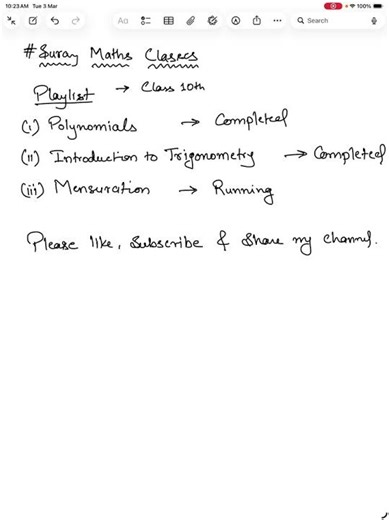 10:23 AM Tue 3 Mar 79%
Search
# Suray Maths Classes
Playlist → Class 10th
(i) Polynomials → Completed
(ii) Introduction to Trigonometry → Completed
(iii) Mensuration → Running
Please like, Subscribe & Share my channel.